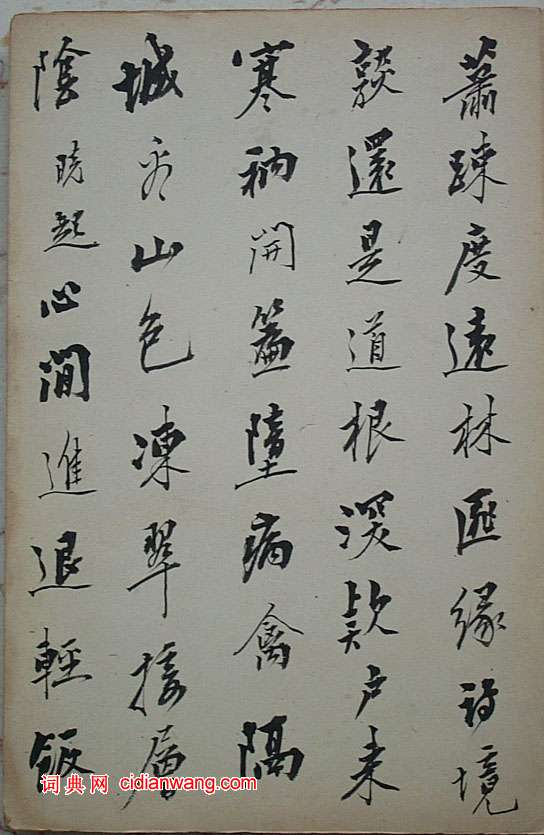 蕭踈度遠林匪緣詩境
談還是道根深欵户来
寒衲開籃墮病禽隔
城看山色凍翠接層
陰暁起心閒進退輕飯
词典网 cidianwang.com